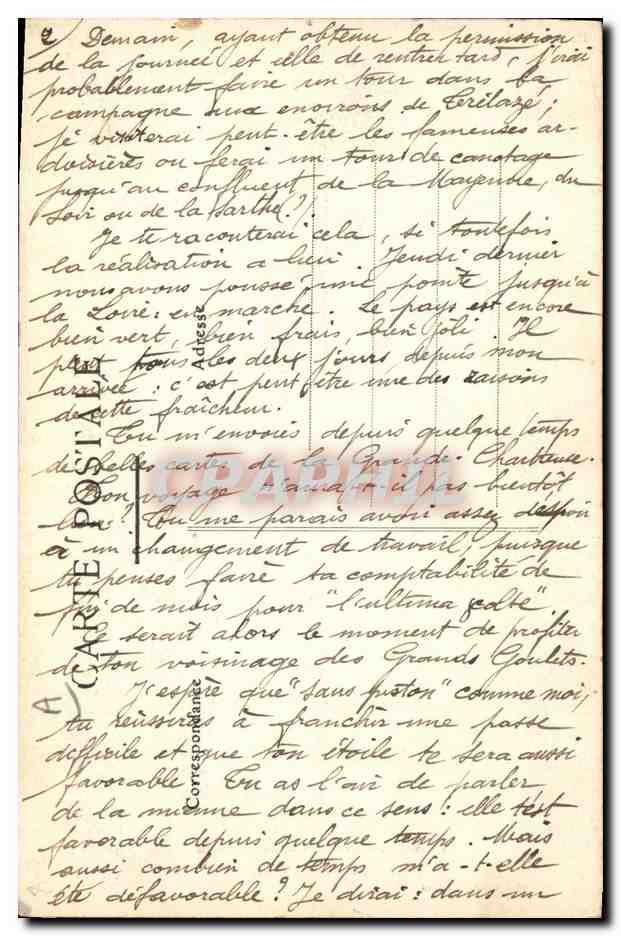 2) Demain, ayant obtenu la permission
de la journée et celle de rentrer tard, j'irai
probablement faire un tour dans la
campagne aux environs de Trélazé;
je visiterai peut-être les fameuses ar-
doisières ou ferai un tour de canotage
jusqu'au confluent de la Mayenne, du
Loir ou de la Sarthe (?).
Je te raconterai cela, si toutefois
la réalisation a lieu. Jeudi dernier
nous avons poussé une pointe jusqu'à
la Loire: en marche. Le pays est encore
bien vert, bien frais, bien joli. Il
pleut tous les deux jours depuis mon
arrivée: c'est peut être une des raisons
de cette fraîcheur.
Tu m'envoies depuis quelque temps
de belles cartes de la Grande-Chartreuse.
Ton voyage n'aura-t-il pas bientôt
lieu? Tu me parais avoir assez d'espoir
à un changement de travail, puisque
tu penses faire ta comptabilité de
fin de mois pour "l'ultima volta".
Ce serait alors le moment de profiter
de ton voisinage des Grands Goulets.
J'espère que "sans piston" comme moi,
tu réussiras à franchir une passe
difficile et que ton étoile te sera aussi
favorable. Tu as l'air de parler
de la mienne dans ce sens: elle t'est
favorable depuis quelque temps. Mais
aussi combien de temps m'a-t-elle
été défavorable? Je dirai: dans un
CARTE POSTALE
Correspondance
Adresse
A
CPARAMA